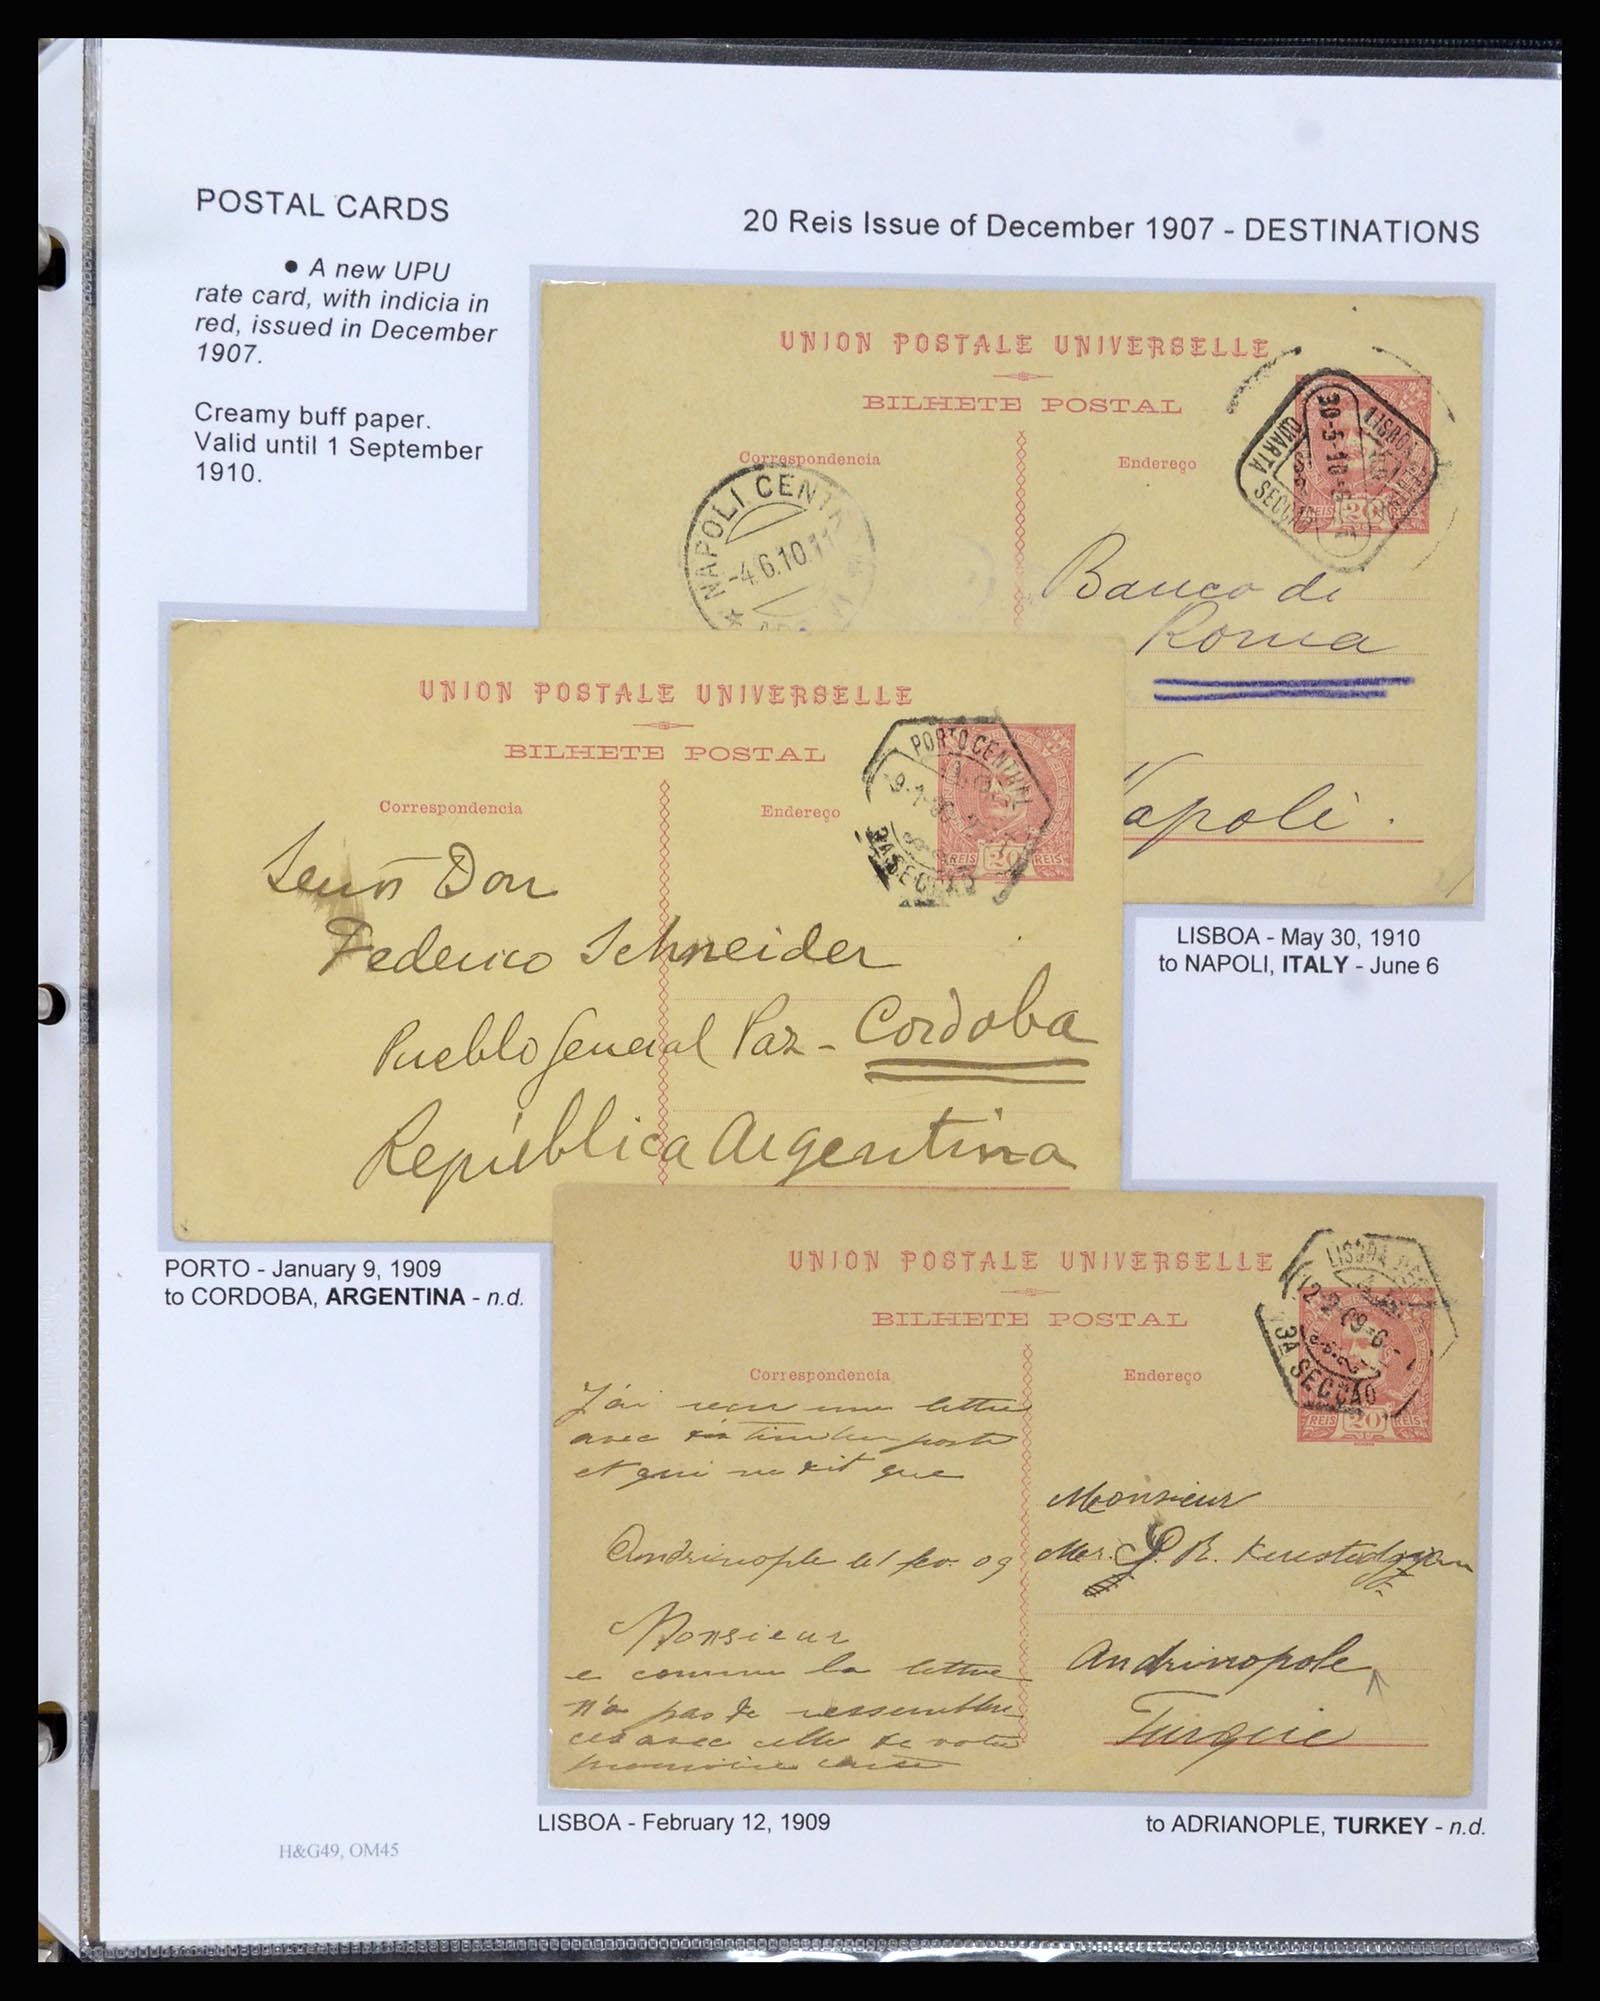 POSTAL CARDS
20 Reis Issue of December 1907 - DESTINATIONS
● A new UPU
rate card, with indicia in
red, issued in December
1907.
Creamy buff paper.
Valid until 1 September
1910.
UNION POSTALE UNIVERSELLE
BILHETE POSTAL
Correspondencia
Endereço
LISBOA CENTRAL
30-5-10
QUARTA SECÇÃO
REIS 20
NAPOLI CENT
-4.6.10.11
Banco di
Roma
Napoli.
LISBOA - May 30, 1910
to NAPOLI, ITALY - June 6
UNION POSTALE UNIVERSELLE
BILHETE POSTAL
Correspondencia
Endereço
PORTO CENTRAL
9-1-09
3A SECÇÃO
REIS 20 REIS
Señor Don
Federico Schneider
Pueblo General Paz - Cordoba
República Argentina
PORTO - January 9, 1909
to CORDOBA, ARGENTINA - n.d.
UNION POSTALE UNIVERSELLE
BILHETE POSTAL
Correspondencia
Endereço
LISBOA CEN
12-2-09-6
3A SECÇÃO
REIS 20 REIS
J'ai reçu une lettre
avec timbre poste
et qui me dit que
Andrinople le 1 fev. 09
Monsieur
e comme la lettre
n'a pas de
avec celle de votre
carte
Monsieur
Mr. S. R.
Andrinopole
Turquie
LISBOA - February 12, 1909
to ADRIANOPLE, TURKEY - n.d.
H&G49, OM45